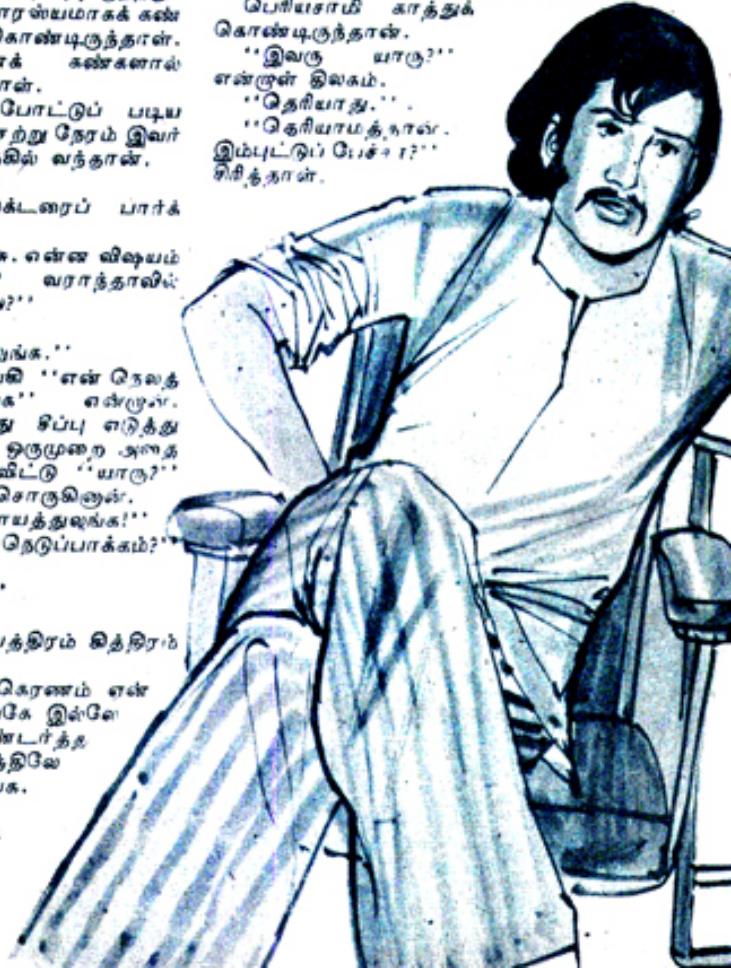 ாரஸ்யமாகக் கண்
கொண்டிருந்தாள்.
ாக் கண்களால்
ாள்.
போட்டுப் படிய
ாற்று நேரம் இவர்
கில் வந்தான்.
க்டரைப் பார்க்
சு. என்ன விஷயம்
வராந்தாவில்
?''
லுங்க.''
கி ''என் நெலத்
க'' என்றான்.
து சீப்பு எடுத்து
ஒருமுறை அதை
விட்டு ''யாரு?''
சொருகினான்.
ாயத்துலங்க!''
நெடுப்பாக்கம்?''
பத்திரம் கித்திரம்
கெரணம் என்
கே இல்லே
ண்டர்த்த
திலே
க.
பெரியசாமி காத்துக்
கொண்டிருந்தான்.
''இவரு யாரு?''
என்றாள் திலகம்.
''தெரியாது.''
''தெரியாமத்தான்
இம்புட்டுப் பேச்சா?''
சிரித்தாள்.